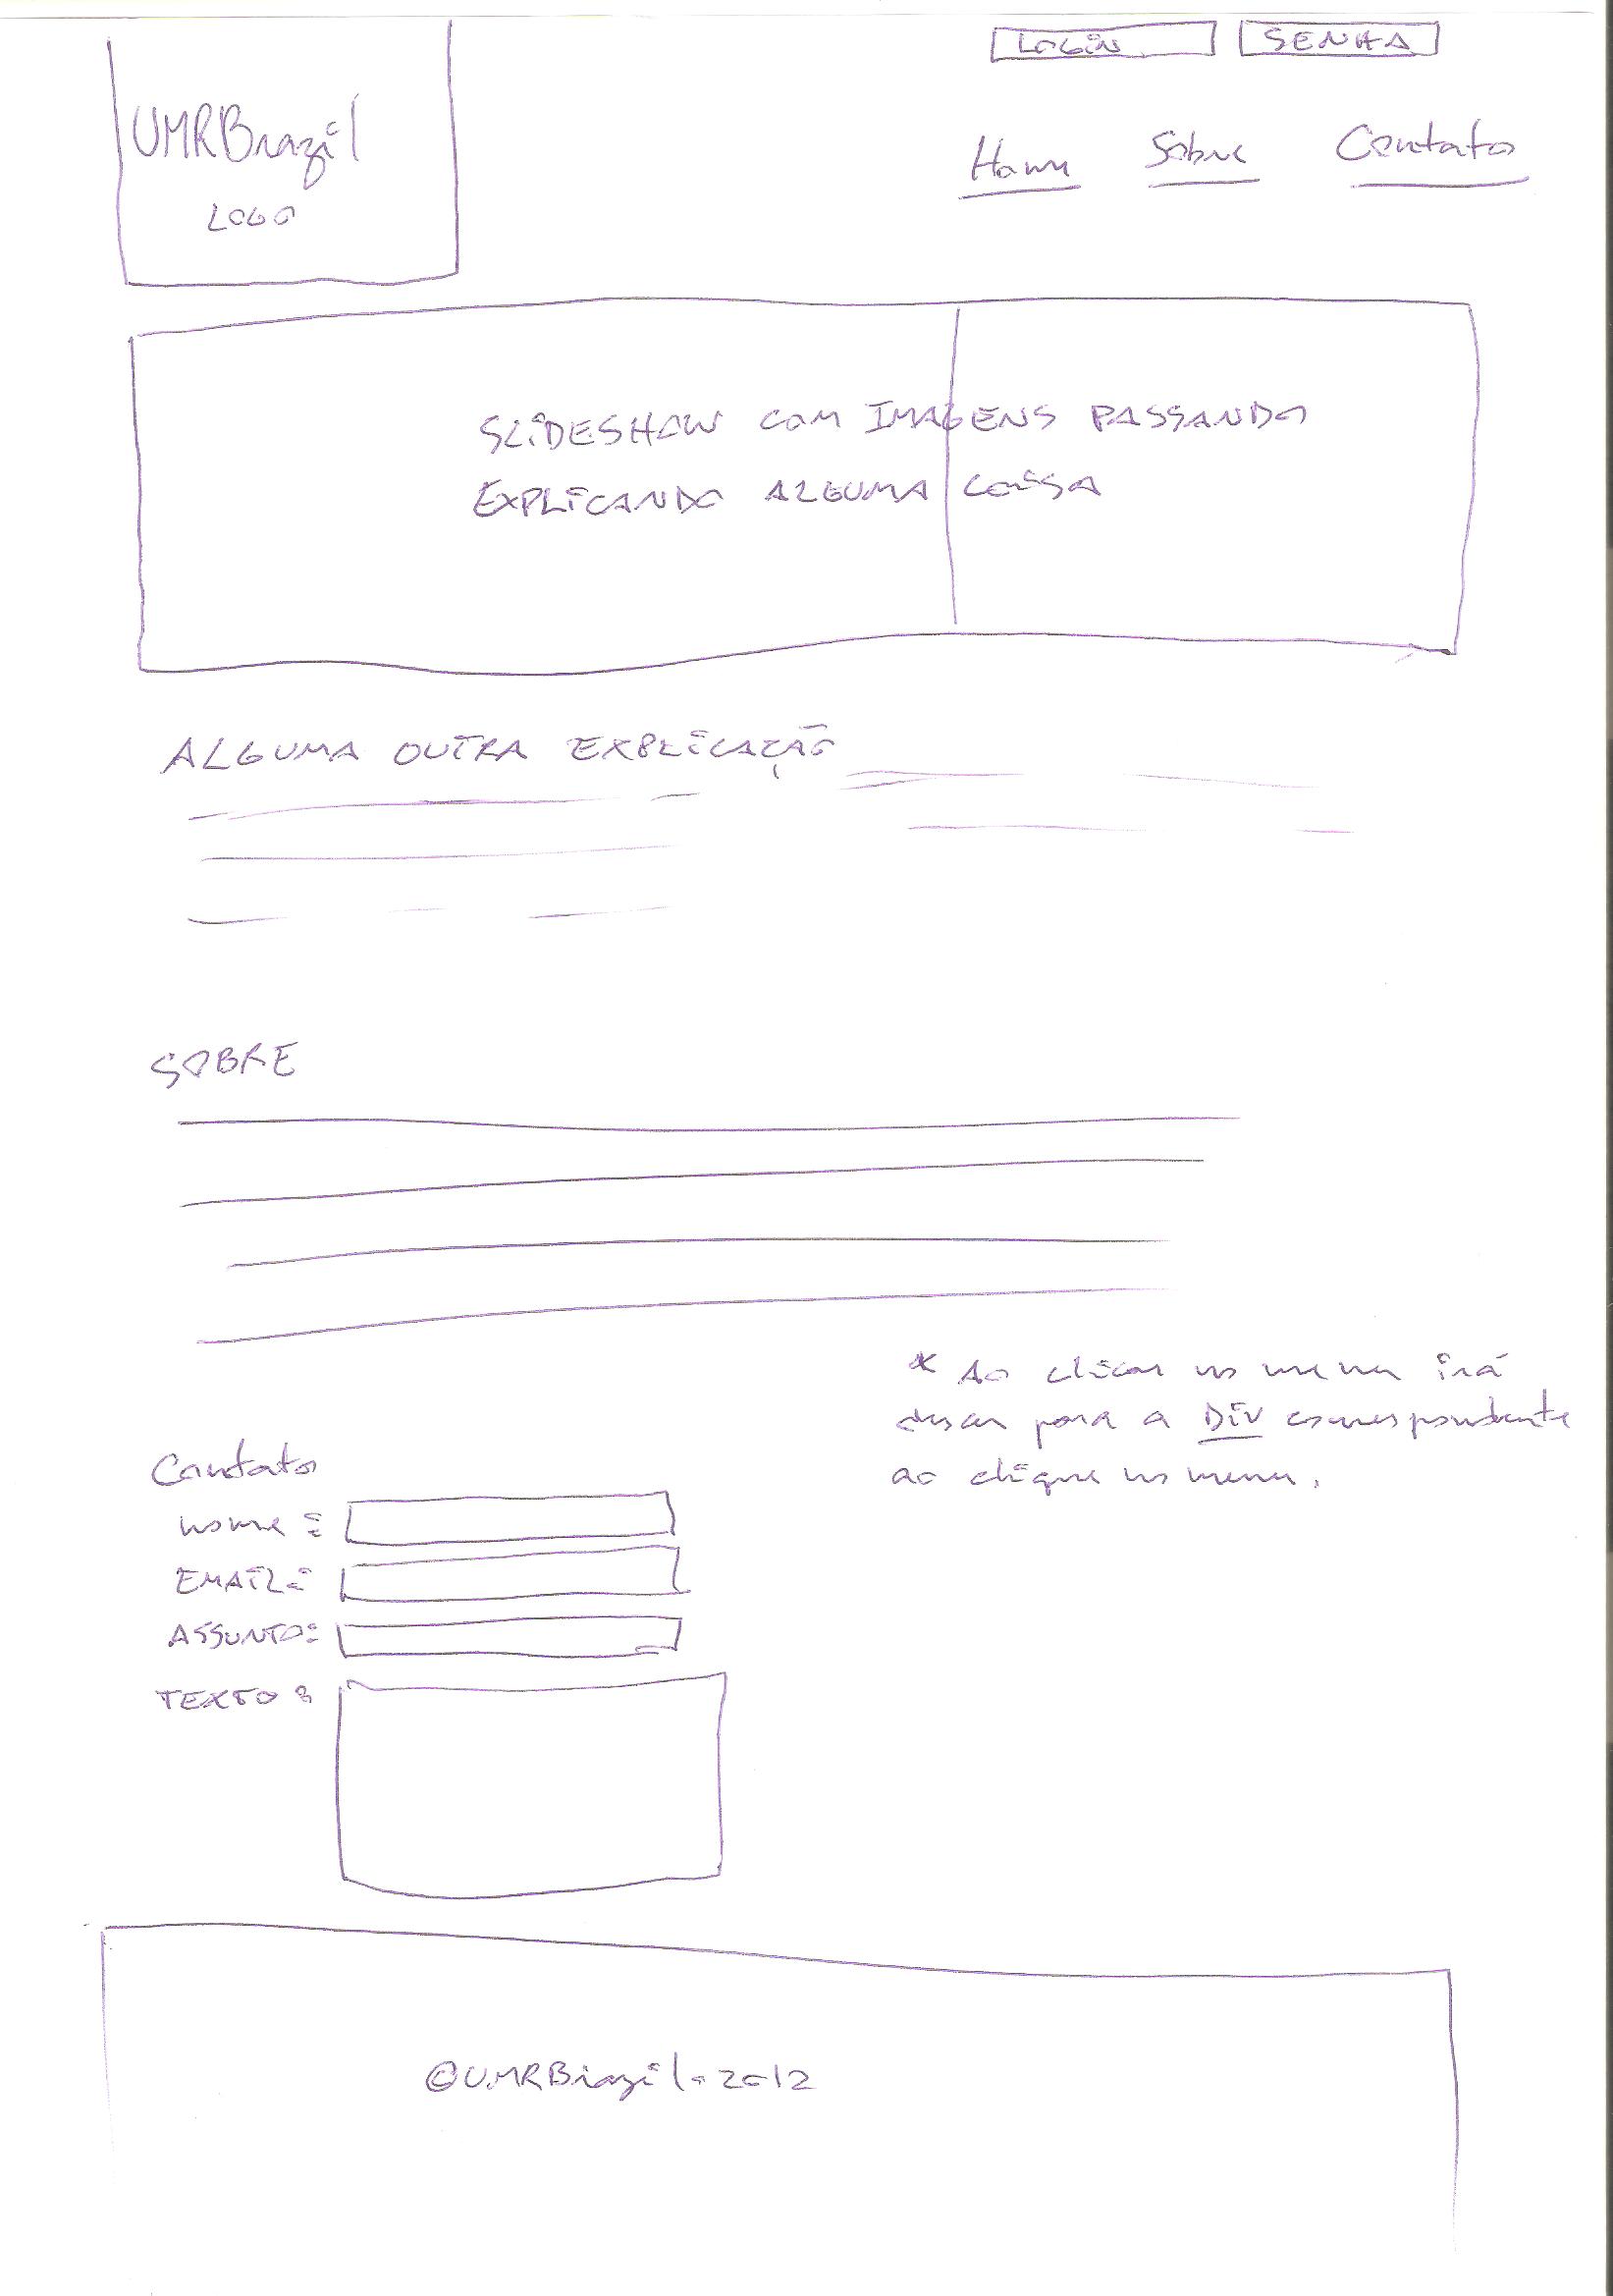 LOGIN
SENHA
UMRBrazil
LOGO
Home
Sobre
Contato
SLIDESHOW COM IMAGENS PASSANDO
EXPLICANDO ALGUMA COISA
ALGUMA OUTRA EXPLICAÇÃO
SOBRE
* Ao clicar no menu irá
descer para a DIV correspondente
ao clique no menu.
Contato
nome:
EMAIL:
ASSUNTO:
TEXTO:
©UMRBrazil.2012